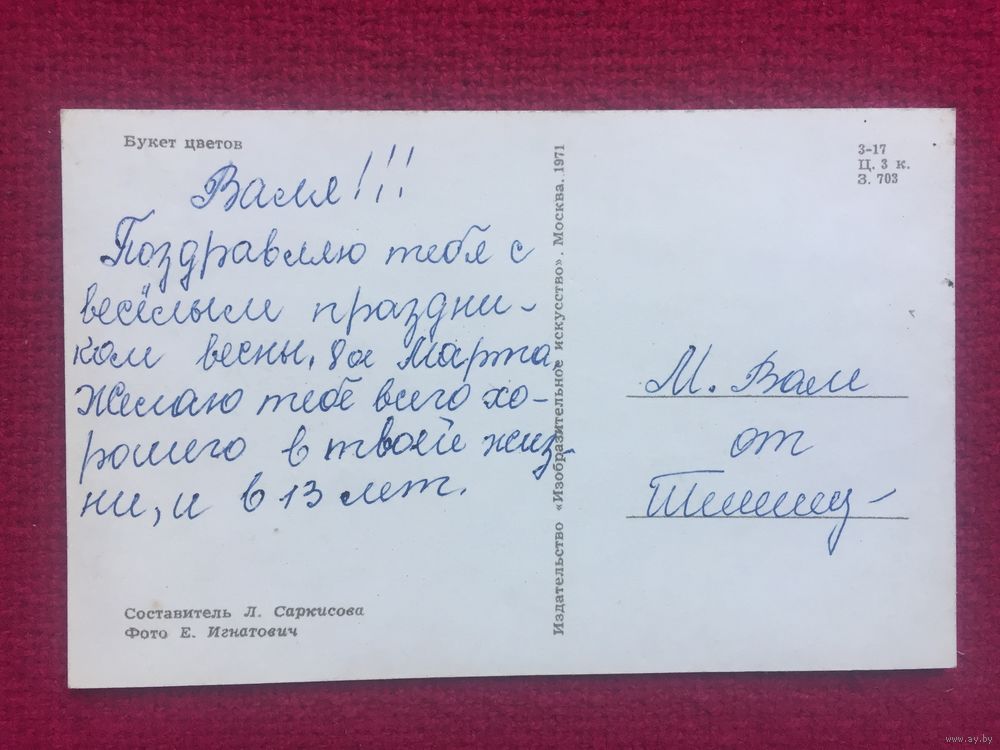 Букет цветов
Валя!!!
Поздравляю тебя с
весёлым праздни-
ком весны, 8ое Марта,
Желаю тебе всего хо-
рошего в твоей жиз-
ни, и в 13 лет.
Составитель Л. Саркисова
Фото Е. Игнатович
Издательство «Изобразительное искусство». Москва. 1971
3-17
Ц. 3 к.
З. 703
М. Вале
от
www.ay.by